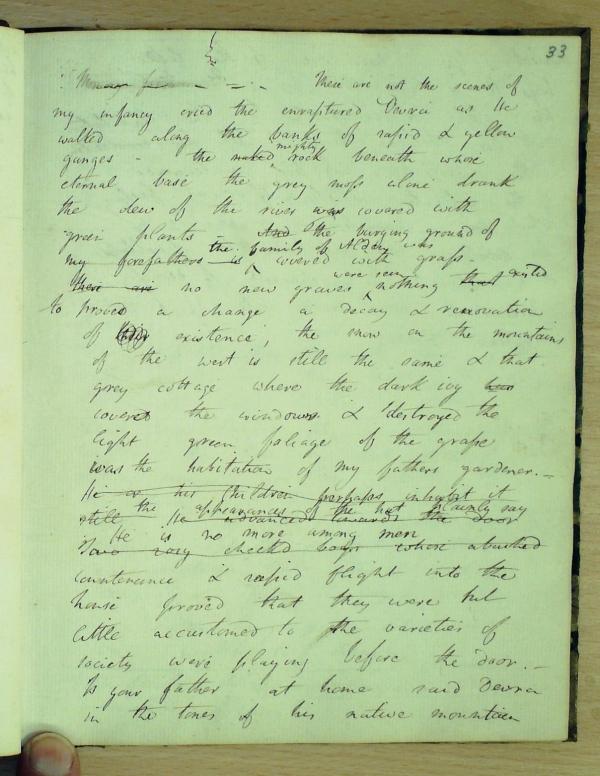 33
These are not the scenes of
my infancy cried the enraptured Dewra as he
walked along the banks of rapid & yellow
ganges - the naked mighty rock beneath whose
eternal base the grey moss alone drank
the dew of the river was covered with
green plants - And the burying ground of
my forefathers is the family of was covered with grass -
there are no new graves were seen nothing that existed
to proved a change a decay & renovation
of existence; the snow on the mountains
of the west is still the same & that
grey cottage where the dark ivy has
covered the windows & destroyed the
light green foliage of the grape
was the habitation of my fathers gardener. -
He or his Children perhaps inhabit it
still the appearances of the hut plainly say
He advanced towards the door
He is no more among men
Two rosy cheeked boys whose abashed
countenance & rapid flight into the
house proved that they were but
little accustomed to the varieties of
society were playing before the door. -
Is your father at home said Dewra
in the tones of his native mountain